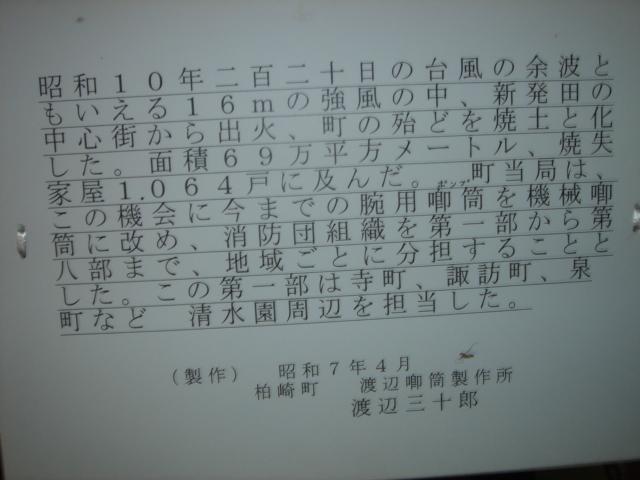 昭和10年二百二十日の台風の余波と
もいえる16mの強風の中、新発田の
中心街から出火、町の殆どを焼土と化
した。面積69万平方メートル、焼失
家屋1.064戸に及んだ。 町当局は、
ポンプ
この機会に今までの腕用喞筒を機械喞
筒に改め、消防団組織を第一部から第
八部まで、地域ごとに分担することと
した。この第一部は寺町、諏訪町、泉
町など 清水園周辺を担当した。
(製作) 昭和7年4月
柏崎町 渡辺喞筒製作所
渡辺三十郎